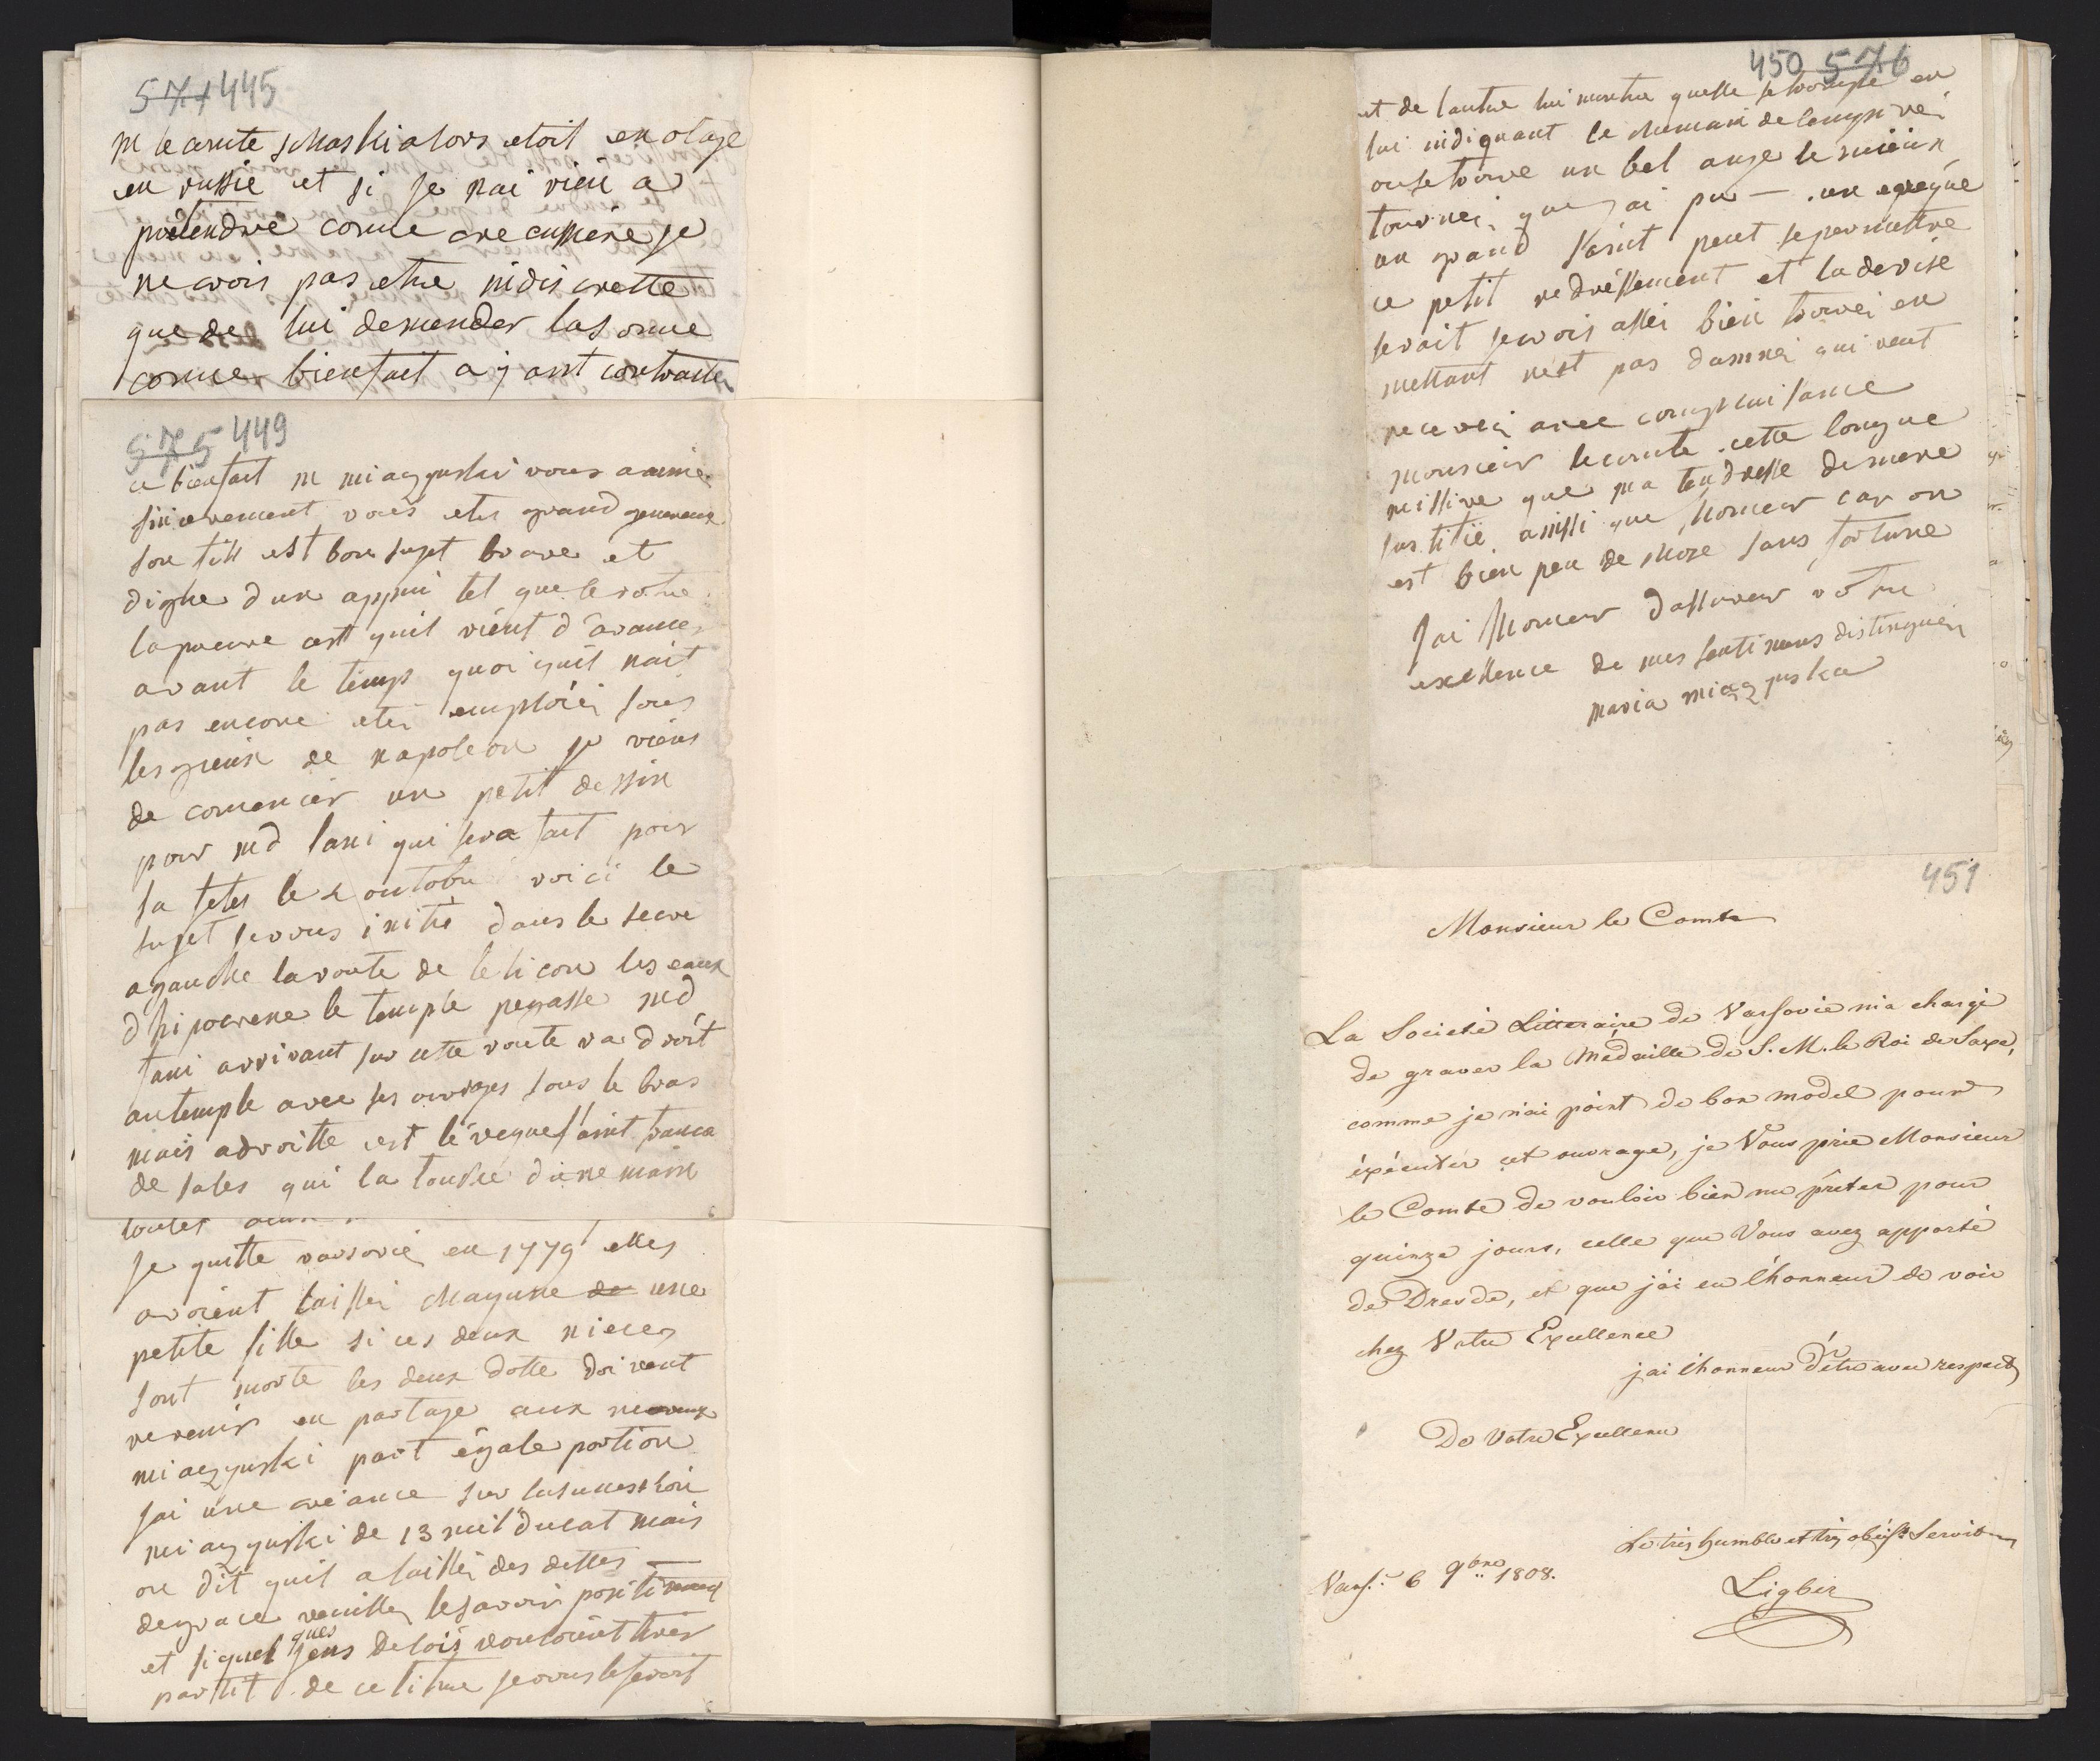 571 445
m le comte s​koskialors etoit en otage
en russie et si je nai rien a
pretendre come creanssiere je
ne crois pas etre indiscrette
que de lui demender lasome
come bienfait ajant contracter
575 449
ce bienfait m miaczynski vous a aimé
sincerement vous etes grand genereux
son fils est bon sujet brave et
digne dun appui tel que le votre
lapreuve cest quil vient davancer
avant le temps quoi quil nait
pas encore etéi emploiéi sous
les yieux de napoleon je viens
de comencer un petit dessin
pour md lani qui sera fait pour
sa fetes le 4 outobre voici le
sujet jevous initie dans le secre
agauche laroute de lelicon les eaux
dhipocrene le temple pegasse md
lani arrivant sur cette route va droit
autemple avec ses ouvrages sous le bras
mais adroitte est léveque saint franca
de sales qui la touche dune main
toutes deux
je quitte varsovie en 1779 elles
avoient laisséi chaqune de une
petite fille si ces deux nieces
sont morte les deux dotte doivent
revenir en partage aux neveux
miaczynski part égale portion
jai une créance sur lasucession
miaczynski de 13 mil ducat mais
on dit quil a laisséi des dettes —
degrace veuillez lesavoir positivment
et siquelques jens delois vouloient tirer
partit de ce titre jevous leferoit
450 576
et de lautre lui montre quelle se trompe en
lui indiquant le chemain delempirée
ousetrouve un bel ange le mieux
tournéi que jai pu — . un eveque
un grand saint peut sepermettre
ce petit redressement et ladevise
seroit jecrois asséi bien trouvéi en
mettant nest pas damnéi qui veut
recevéi avec complaisance
monsieur lecomte cette longue
missive que ma tendresse demere
justifie ainssi que honeur car on
est bien peu de chose sans fortune
Jai lhoneur dassurer votre
exellence de mes sentimens distinguéi
maria miaczynska
451
Monsieur le Comte
La Societé Litteraire de Varsovie m'a chargé
de graver la Médaille de S. M. le Roi de Saxe,
comme je n'ai point de bon model pour
éxécuter cet ouvrage, je Vous prie Monsieur
le Comte de vouloir bien me prêter pour
quinze jours, celle que Vous avez apporté
de Dresde, et que j'ai eu l'honneur de voir
chez Votre Excellence
j'ai l'honneur d'être avec respect
De Votre Excellence
Le très humble et très obéist Serviteur
Vars. 6 9bre 1808.
Ligber